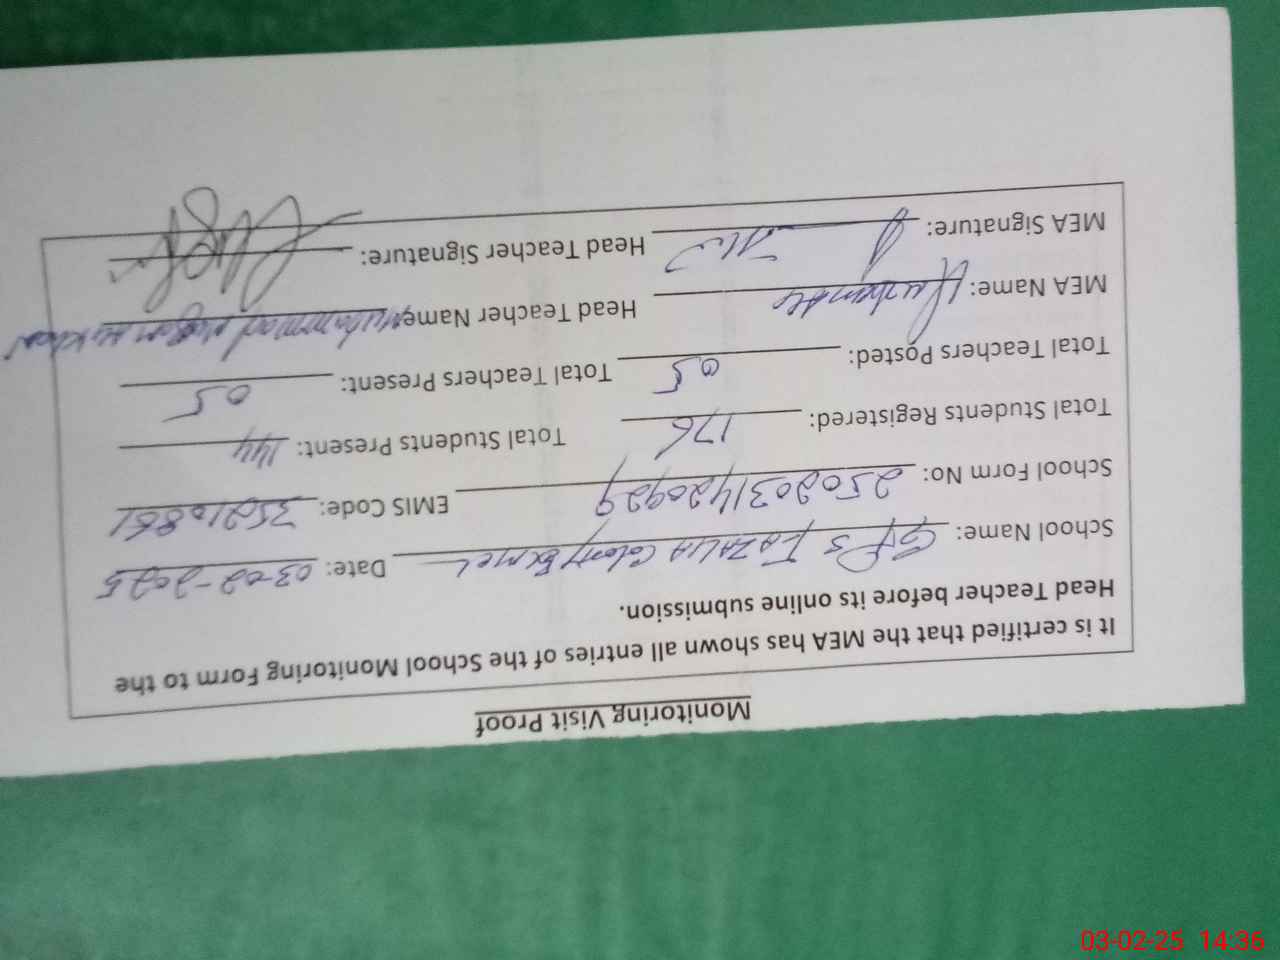 Monitoring Visit Proof
It is certified that the MEA has shown all entries of the School Monitoring Form to the
Head Teacher before its online submission.
School Name: GPS FAZALIA Colony Date: 03-02-2025
School Form No: 2502031420929 EMIS Code: 35210861
Total Students Registered: 176 Total Students Present: 144
Total Teachers Posted: 05 Total Teachers Present: 05
MEA Name: Head Teacher Name: Muhammad
MEA Signature: Head Teacher Signature:
03-02-25 14:36